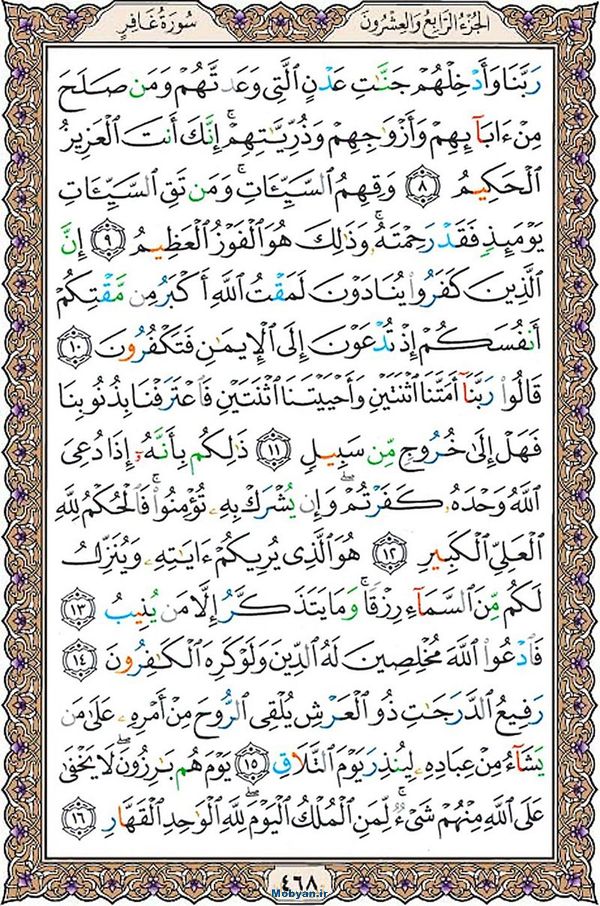 الجزء الرابع والعشرون
سورة غافر
رَبَّنَا وَأَدْخِلْهُمْ جَنَّٰتِ عَدْنٍ ٱلَّتِى وَعَدتَّهُمْ وَمَن صَلَحَ
مِنْ ءَابَآئِهِمْ وَأَزْوَٰجِهِمْ وَذُرِّيَّٰتِهِمْ ۚ إِنَّكَ أَنتَ ٱلْعَزِيزُ
ٱلْحَكِيمُ ٨ وَقِهِمُ ٱلسَّيِّـَٔاتِ ۚ وَمَن تَقِ ٱلسَّيِّـَٔاتِ
يَوْمَئِذٍ فَقَدْ رَحِمْتَهُۥ ۚ وَذَٰلِكَ هُوَ ٱلْفَوْزُ ٱلْعَظِيمُ ٩ إِنَّ
ٱلَّذِينَ كَفَرُوا۟ يُنَادَوْنَ لَمَقْتُ ٱللَّهِ أَكْبَرُ مِن مَّقْتِكُمْ
أَنفُسَكُمْ إِذْ تُدْعَوْنَ إِلَى ٱلْإِيمَٰنِ فَتَكْفُرُونَ ١٠
قَالُوا۟ رَبَّنَآ أَمَتَّنَا ٱثْنَتَيْنِ وَأَحْيَيْتَنَا ٱثْنَتَيْنِ فَٱعْتَرَفْنَا بِذُنُوبِنَا
فَهَلْ إِلَىٰ خُرُوجٍ مِّن سَبِيلٍ ١١ ذَٰلِكُم بِأَنَّهُۥٓ إِذَا دُعِىَ
ٱللَّهُ وَحْدَهُۥ كَفَرْتُمْ ۖ وَإِن يُشْرَكْ بِهِۦ تُؤْمِنُوا۟ ۚ فَٱلْحُكْمُ لِلَّهِ
ٱلْعَلِىِّ ٱلْكَبِيرِ ١٢ هُوَ ٱلَّذِى يُرِيكُمْ ءَايَٰتِهِۦ وَيُنَزِّلُ
لَكُم مِّنَ ٱلسَّمَآءِ رِزْقًا ۚ وَمَا يَتَذَكَّرُ إِلَّا مَن يُنِيبُ ١٣
فَٱدْعُوا۟ ٱللَّهَ مُخْلِصِينَ لَهُ ٱلدِّينَ وَلَوْ كَرِهَ ٱلْكَٰفِرُونَ ١٤
رَفِيعُ ٱلدَّرَجَٰتِ ذُو ٱلْعَرْشِ يُلْقِى ٱلرُّوحَ مِنْ أَمْرِهِۦ عَلَىٰ مَن
يَشَآءُ مِنْ عِبَادِهِۦ لِيُنذِرَ يَوْمَ ٱلتَّلَاقِ ١٥ يَوْمَ هُم بَٰرِزُونَ ۖ لَا يَخْفَىٰ
عَلَى ٱللَّهِ مِنْهُمْ شَىْءٌ ۚ لِّمَنِ ٱلْمُلْكُ ٱلْيَوْمَ ۖ لِلَّهِ ٱلْوَٰحِدِ ٱلْقَهَّارِ ١٦
٤٦٨
Mobyan.ir